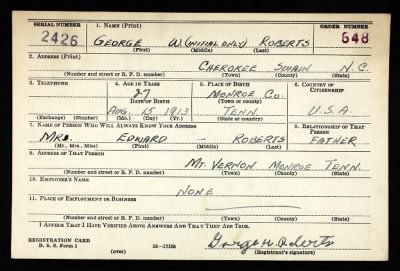 SERIAL NUMBER 1. NAME (Print) ORDER NUMBER
2426 GEORGE W.(INITIAL ONLY) ROBERTS 648
(First) (Middle) (Last)
2. ADDRESS (Print)
CHEROKEE SWAIN N.C.
(Number and street or R. F. D. number) (Town) (County) (State)
3. TELEPHONE 4. AGE IN YEARS 5. PLACE OF BIRTH 6. COUNTRY OF CITIZENSHIP
27 MONROE CO.
DATE OF BIRTH (Town or county)
AUG. 15 1913 TENN U.S.A.
(Exchange) (Number) (Mo.) (Day) (Yr.) (State or country)
7. NAME OF PERSON WHO WILL ALWAYS KNOW YOUR ADDRESS 8. RELATIONSHIP OF THAT PERSON
MRS. EDWARD - ROBERTS FATHER
(Mr., Mrs., Miss) (First) (Middle) (Last)
9. ADDRESS OF THAT PERSON
MT. VERNON MONROE TENN.
(Number and street or R. F. D. number) (Town) (County) (State)
10. EMPLOYER'S NAME
NONE
11. PLACE OF EMPLOYMENT OR BUSINESS
(Number and street or R. F. D. number) (Town) (County) (State)
I AFFIRM THAT I HAVE VERIFIED ABOVE ANSWERS AND THAT THEY ARE TRUE.
REGISTRATION CARD George W. Roberts
D. S. S. Form 1 (over) 16-17105 (Registrant's signature)